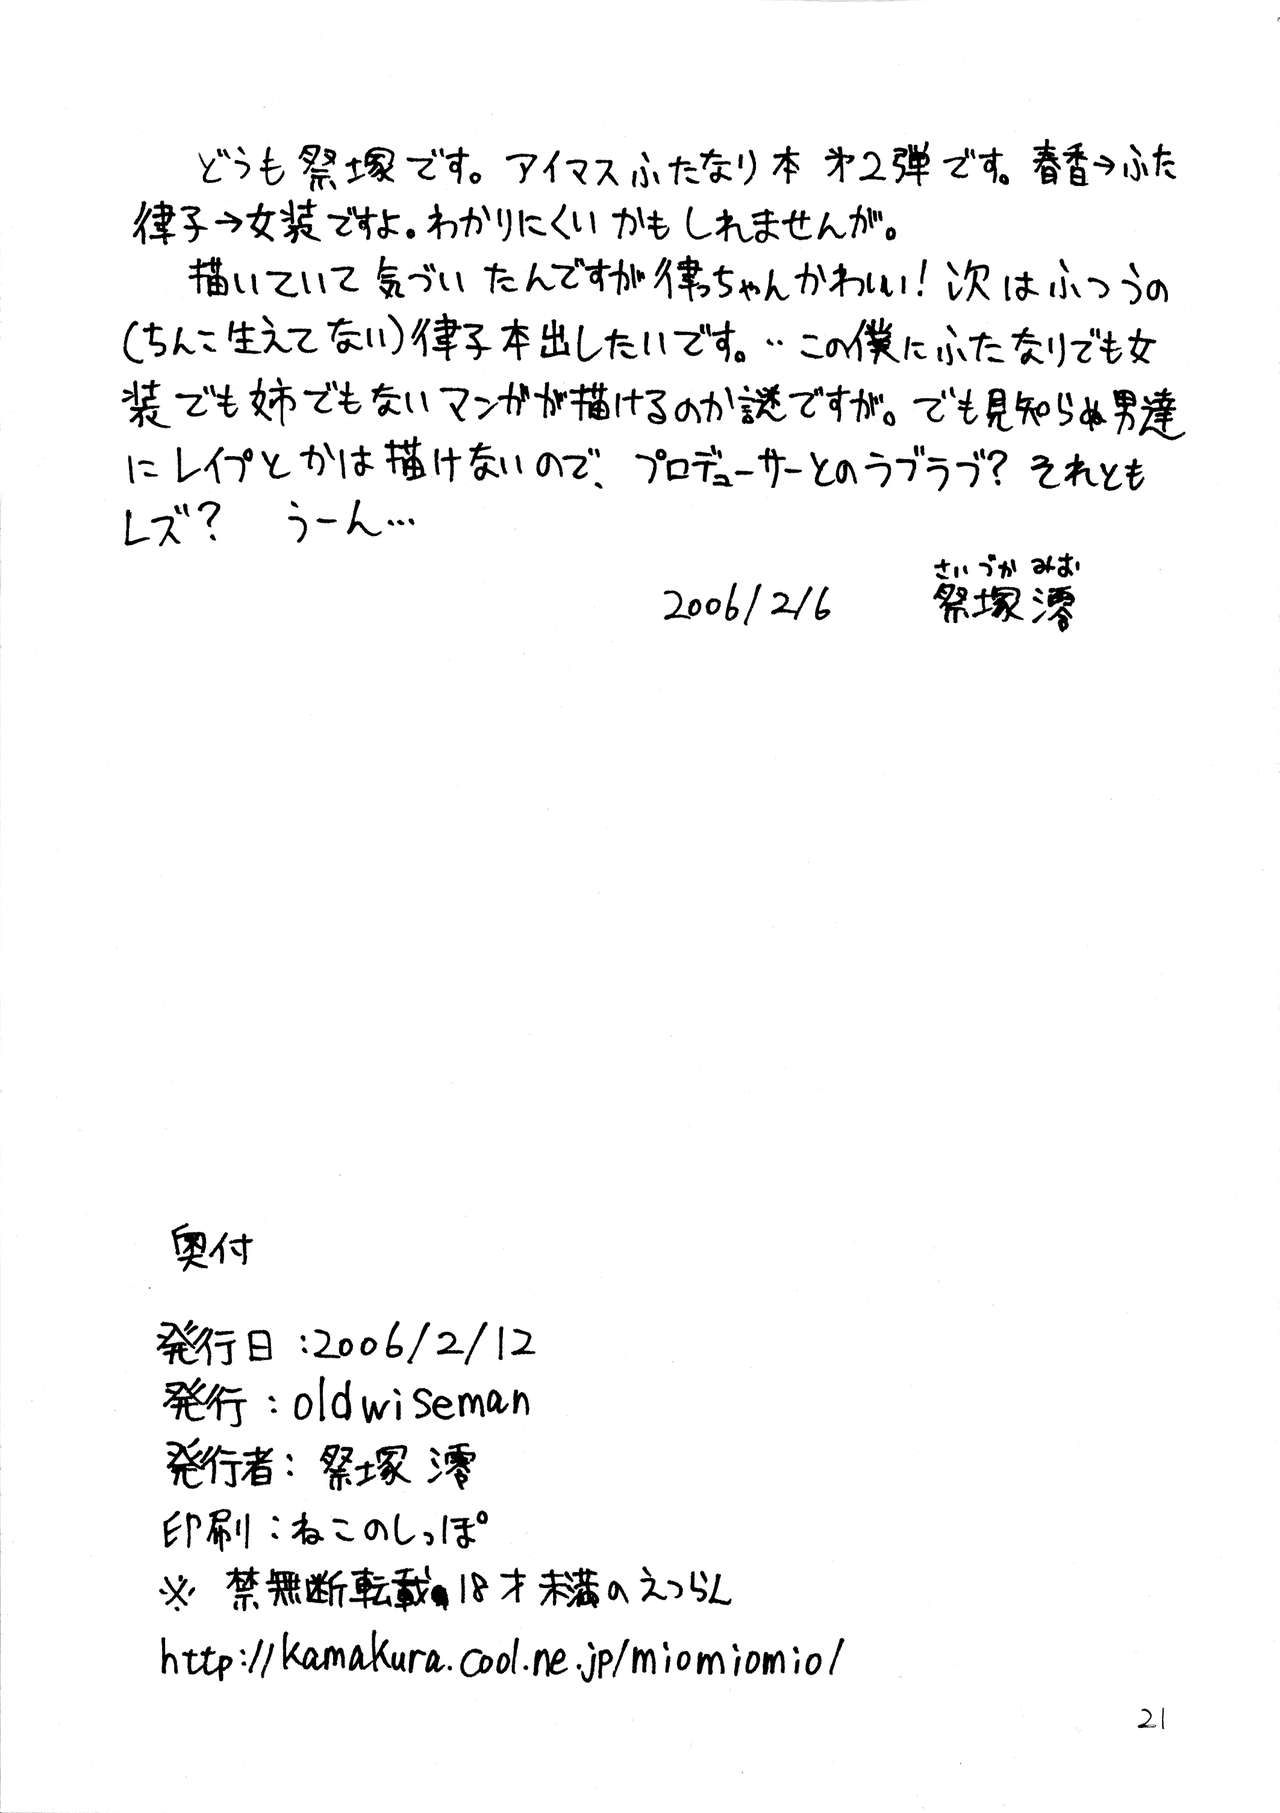 どうも祭塚です。アイマスふたなり本 才2弾です。春香→ふた
律子→女装ですよ。わかりにくいかもしれませんが。
描いていて気づいたんですが律っちゃんかわいい！次はふつうの
(ちんこ生えてない)律子本出したいです。‥この僕にふたなりでも女
装でも姉でもないマンガが描けるのか謎ですが。でも見知らぬ男達
にレイプとかは描けないので、プロデューサーとのラブラブ？それとも
レズ？ うーん…
さいづか みお
2006/2/6 祭塚 澪
奥付
発行日：2006/2/12
発行：oldwiseman
発行者：祭塚 澪
印刷：ねこのしっぽ
※ 禁無断転載 18才未満のえつらん
http://kamakura.cool.ne.jp/miomiomio/
21